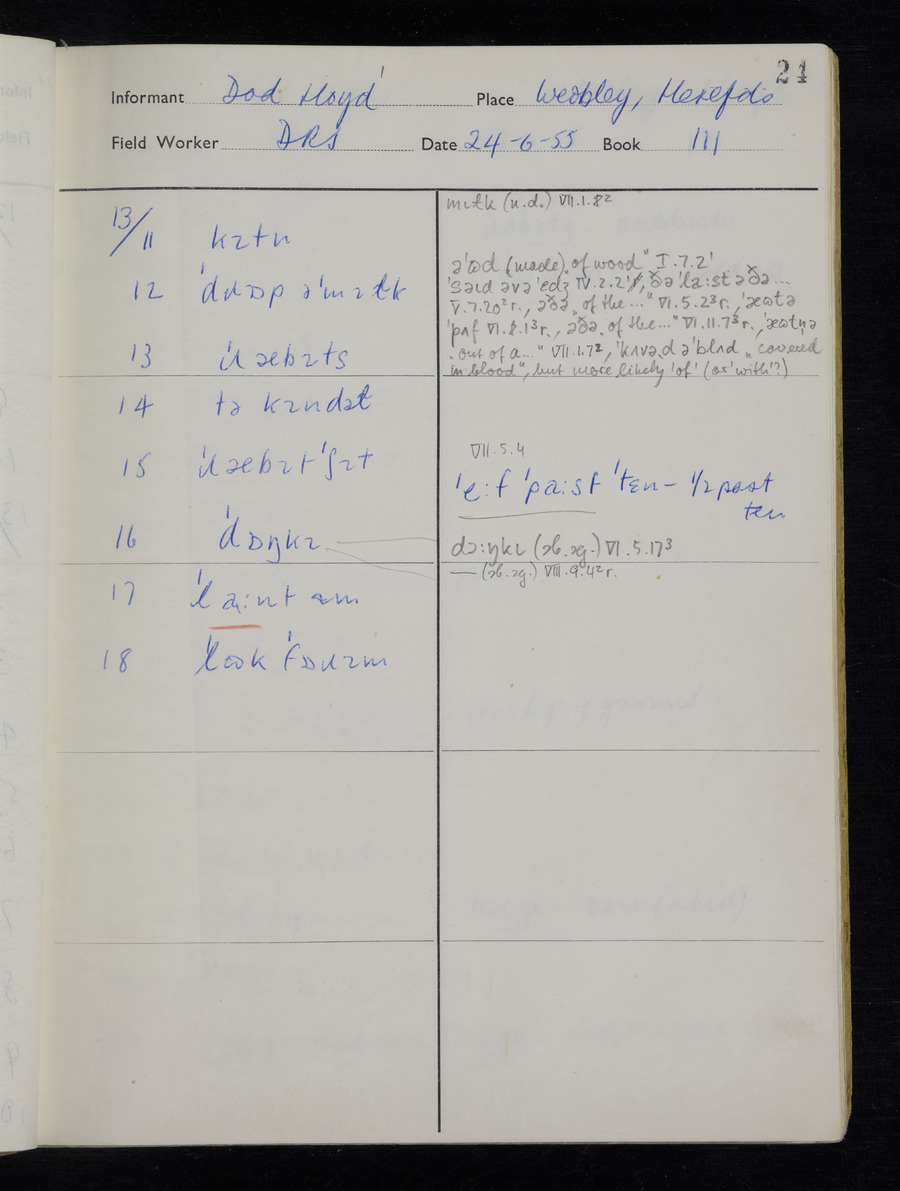 21
Informant Dod Lloyd Place Weobley, Herefds
Field Worker DRS Date 24-6-55 Book III
13/11 kɪtn
12 ˈdɹɒp əˈmɪɫk
13 ˈɹæbɪts
14 tə kɪndəɫ
15 ˈɹæbɪtˈʃɪt
16 ˈdɒŋkɪ
17
18 ˈlʊk ˈfɒɹɪm
mɪɫk (n.d.) VII.1.8²
əˈʊd (made) „of wood" I.7.2'
ˈsəɪd əvə ˈedʒ IV.2.2', ðə ˈla:st əðə ...
V.7.20² r., əðə „of the..." VI.5.23 r., ˈæʊtə
VI.8.13 r., əðə „of the..." VI.11.7³ r.,
„out of a..." VII.1.7², ə ˈblʌd „covered
in blood", but more likely 'of' (or 'with'?)
VII.5.4
ˈe:f ˈpa:st ˈtɛn – ½ past
ten
VI.5.17³
VIII.9.4² r.